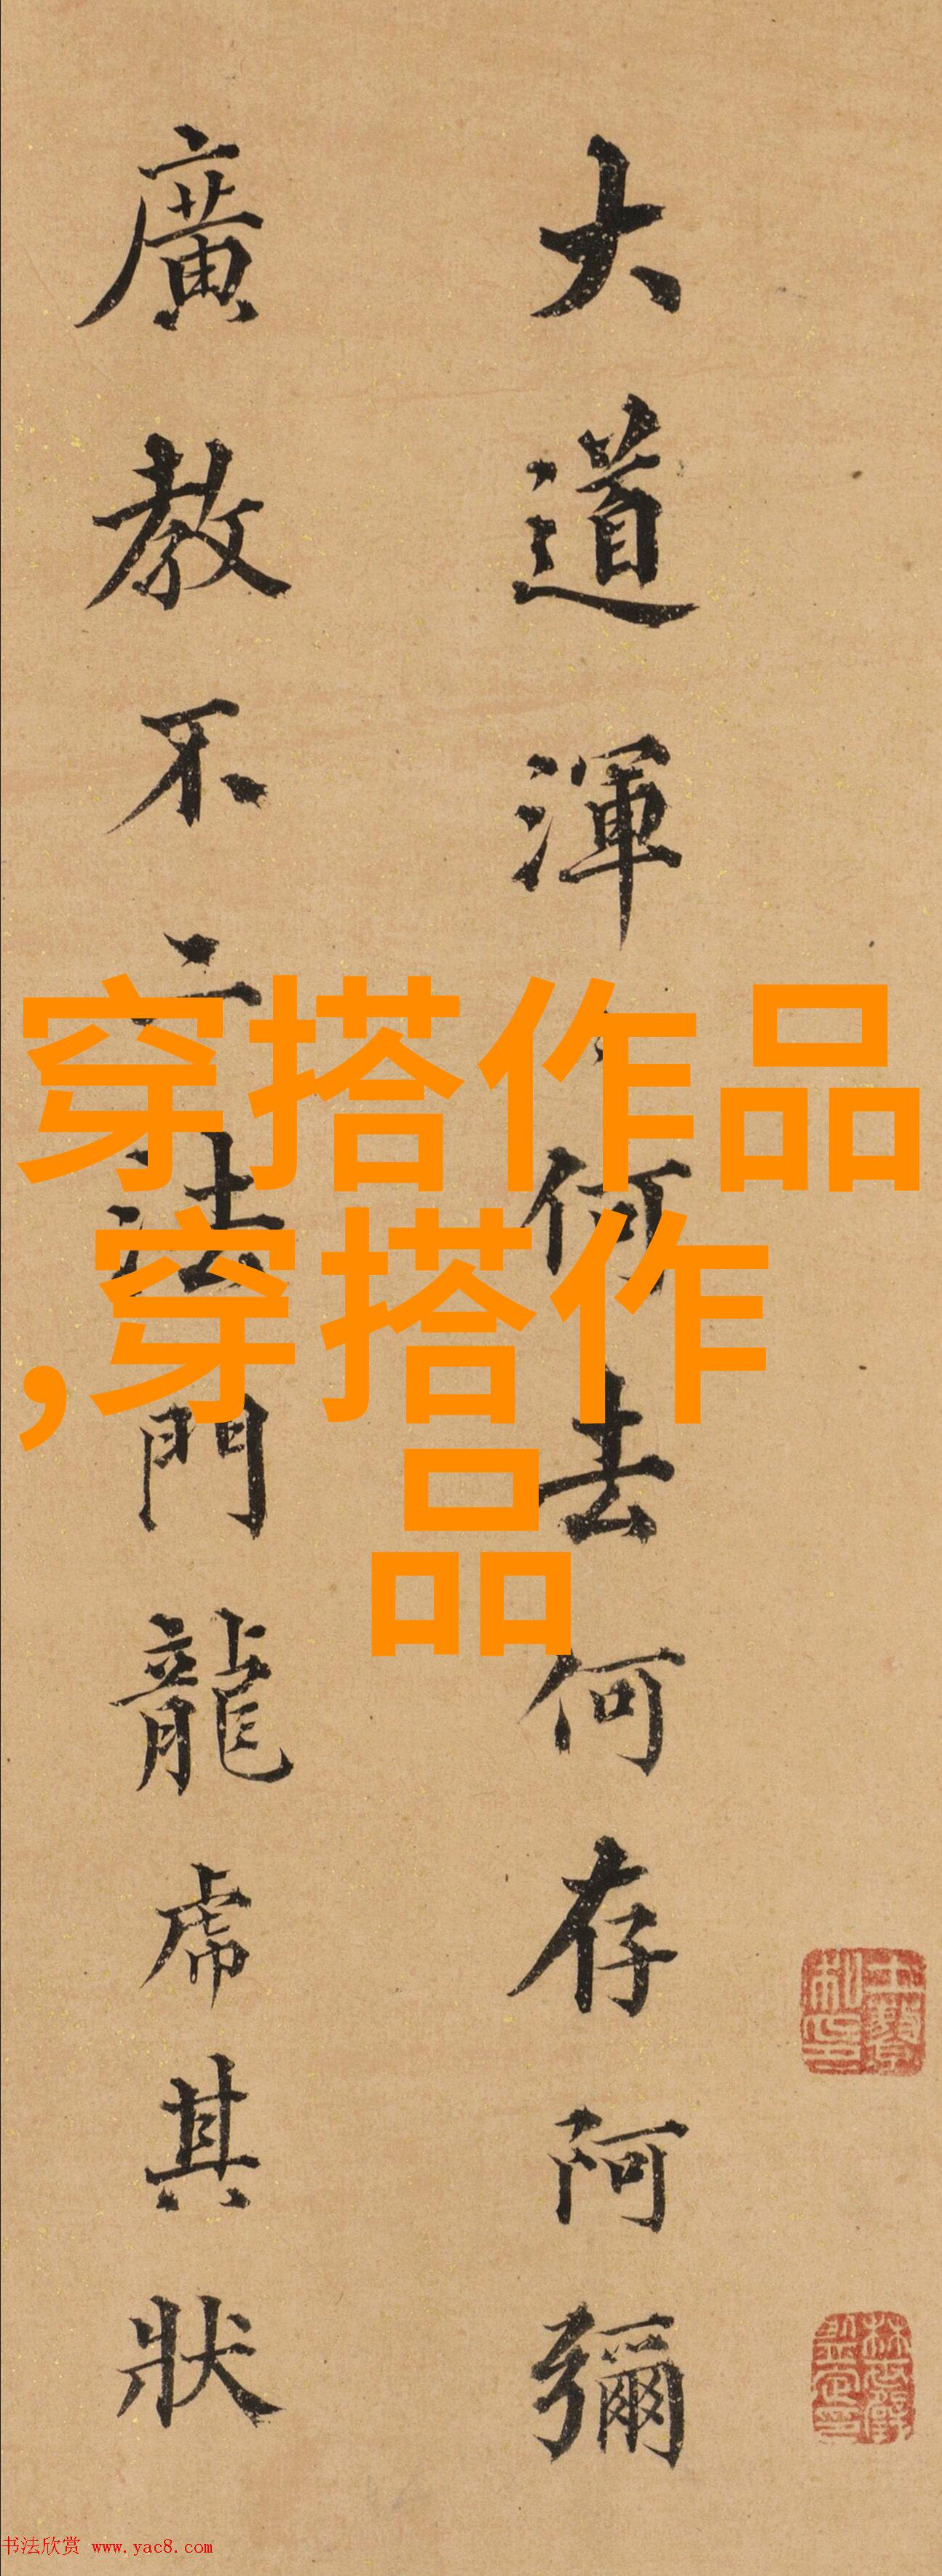 大道渾〻何去何存阿彌
廣教不二法門龍虎其狀
穿搭作品
,穿搭作
品
书法欣赏 www.yac8.com